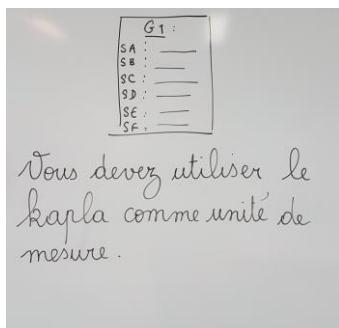 G1 :
SA : ___
SB : ___
SC : ___
SD : ___
SE : ___
SF : ___
Vous devez utiliser le
kapla comme unité de
mesure.